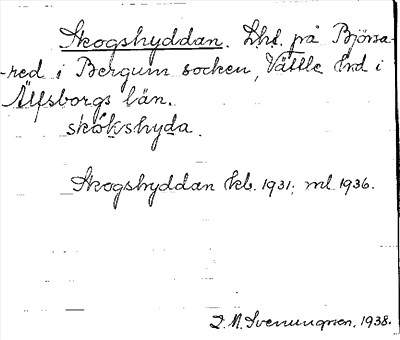 Skogshyddan. Lht. på Björsa-
-red i Bergum socken, Vättle hrd i
Älfsborgs län.
skókshyda.
Skogshyddan kb. 1931; ml 1936.
M. Svenungsson, 1938.